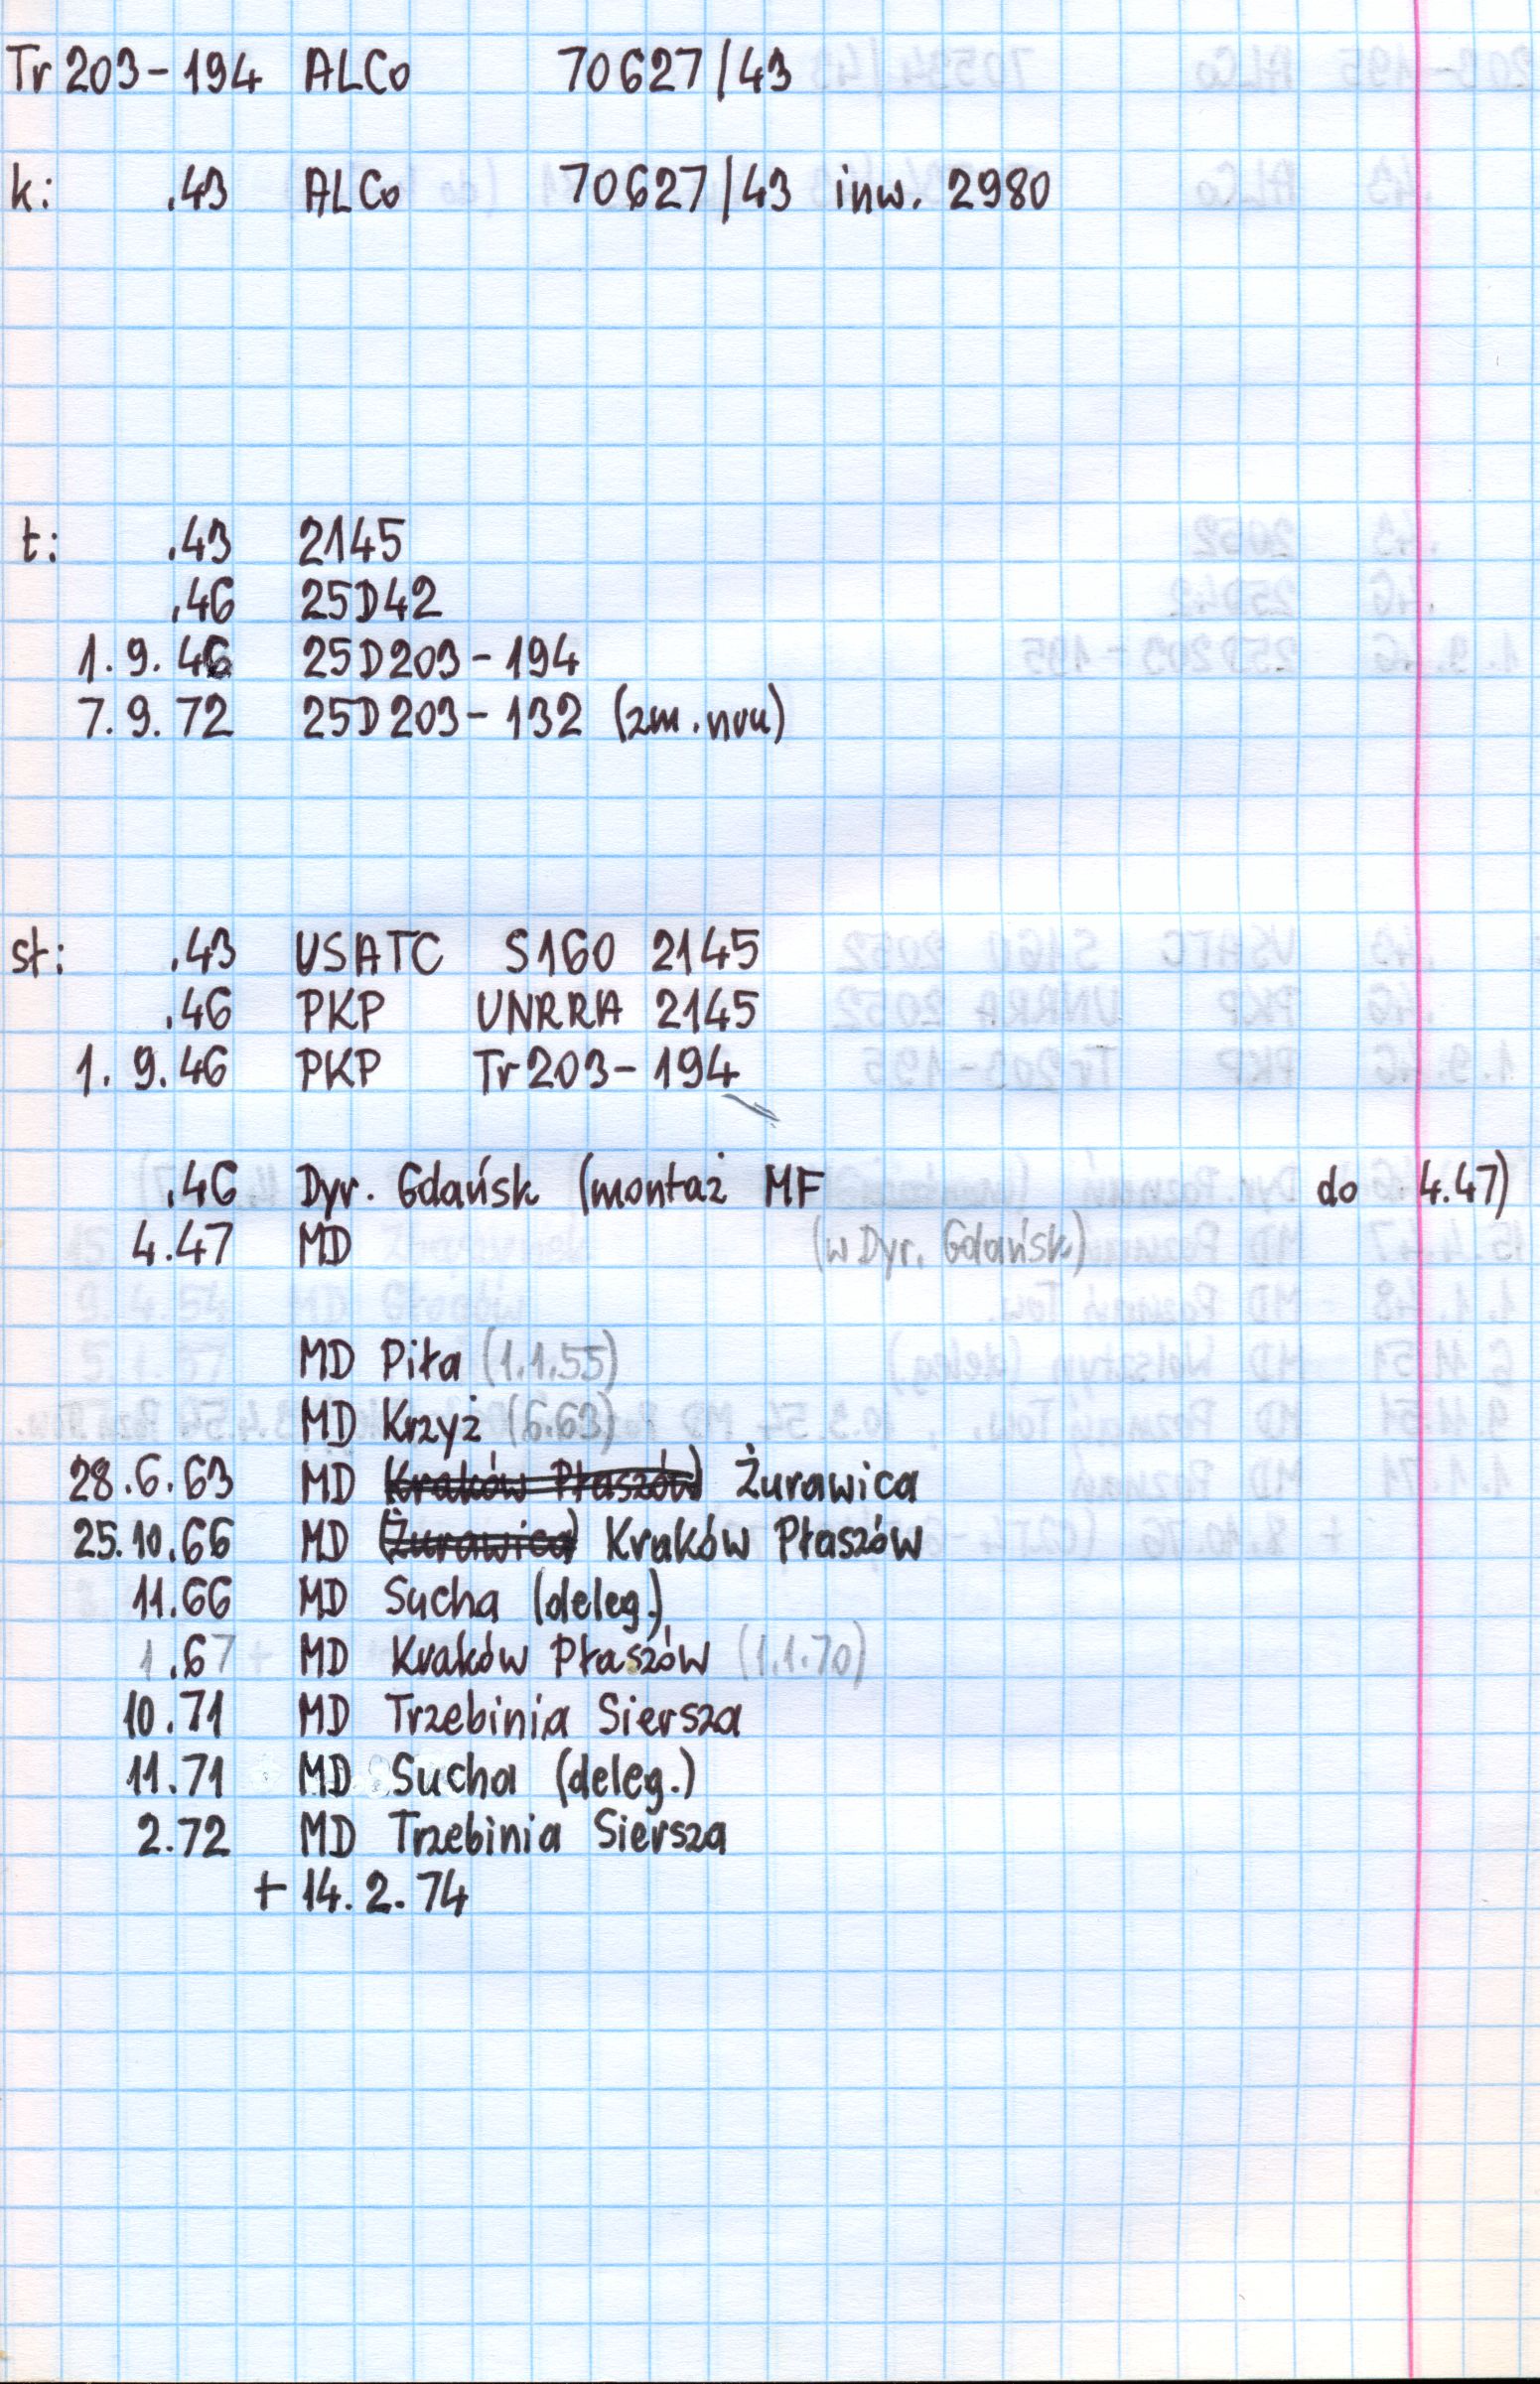 Tr 203-194 ALCo 70627/43
k: .43 ALCo 70627/43 inw. 2980
t: .43 2145
.46 25D42
1.9.46 25D203-194
7.9.72 25D203-132 (zm. nru)
st: .43 USATC S160 2145
.46 PKP UNRRA 2145
1.9.46 PKP Tr203-194
.46 Dyr. Gdańsk (montaż MF do 4.47)
4.47 MD (w Dyr. Gdańsk)
MD Piła (1.1.55)
MD Krzyż (6.63)
28.6.63 MD (Kraków Płaszów) Żurawica
25.10.66 MD (Żurawica) Kraków Płaszów
11.66 MD Sucha (deleg.)
1.67 MD Kraków Płaszów (1.1.70)
10.71 MD Trzebinia Siersza
11.71 MD Sucha (deleg.)
2.72 MD Trzebinia Siersza
+ 14.2.74